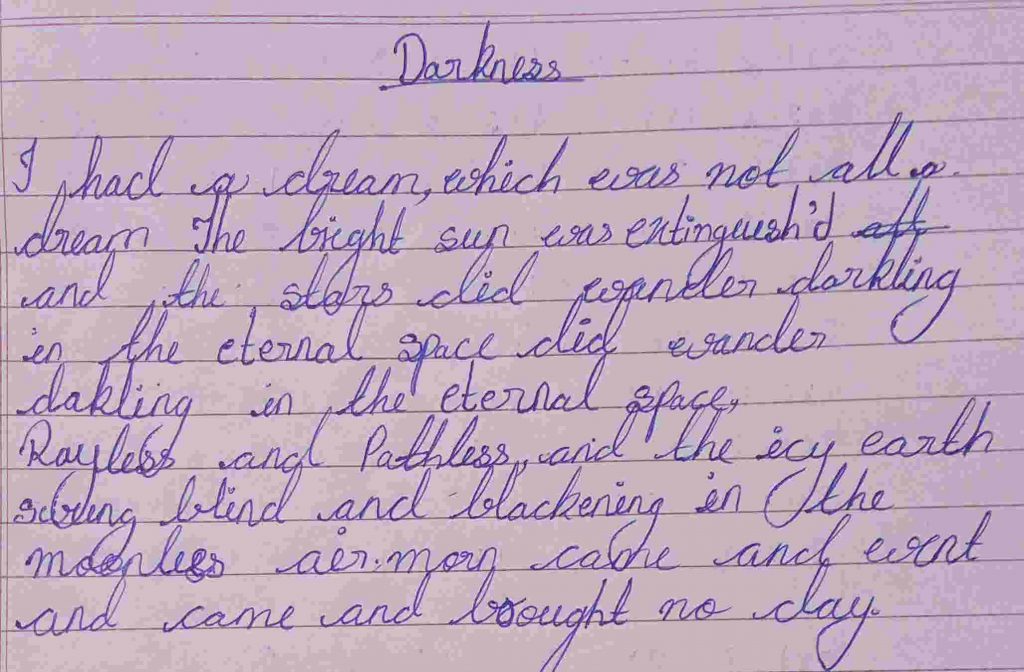 Darkness
I had a dream, which was not all a
dream The bright sun was extinguish'd
and the stars did wander darkling
in the eternal space did wander
dakling in the eternal space,
Rayless and Pathless, and the icy earth
swung blind and blackening in the
moonless air. morn came and went
and came and brought no day.